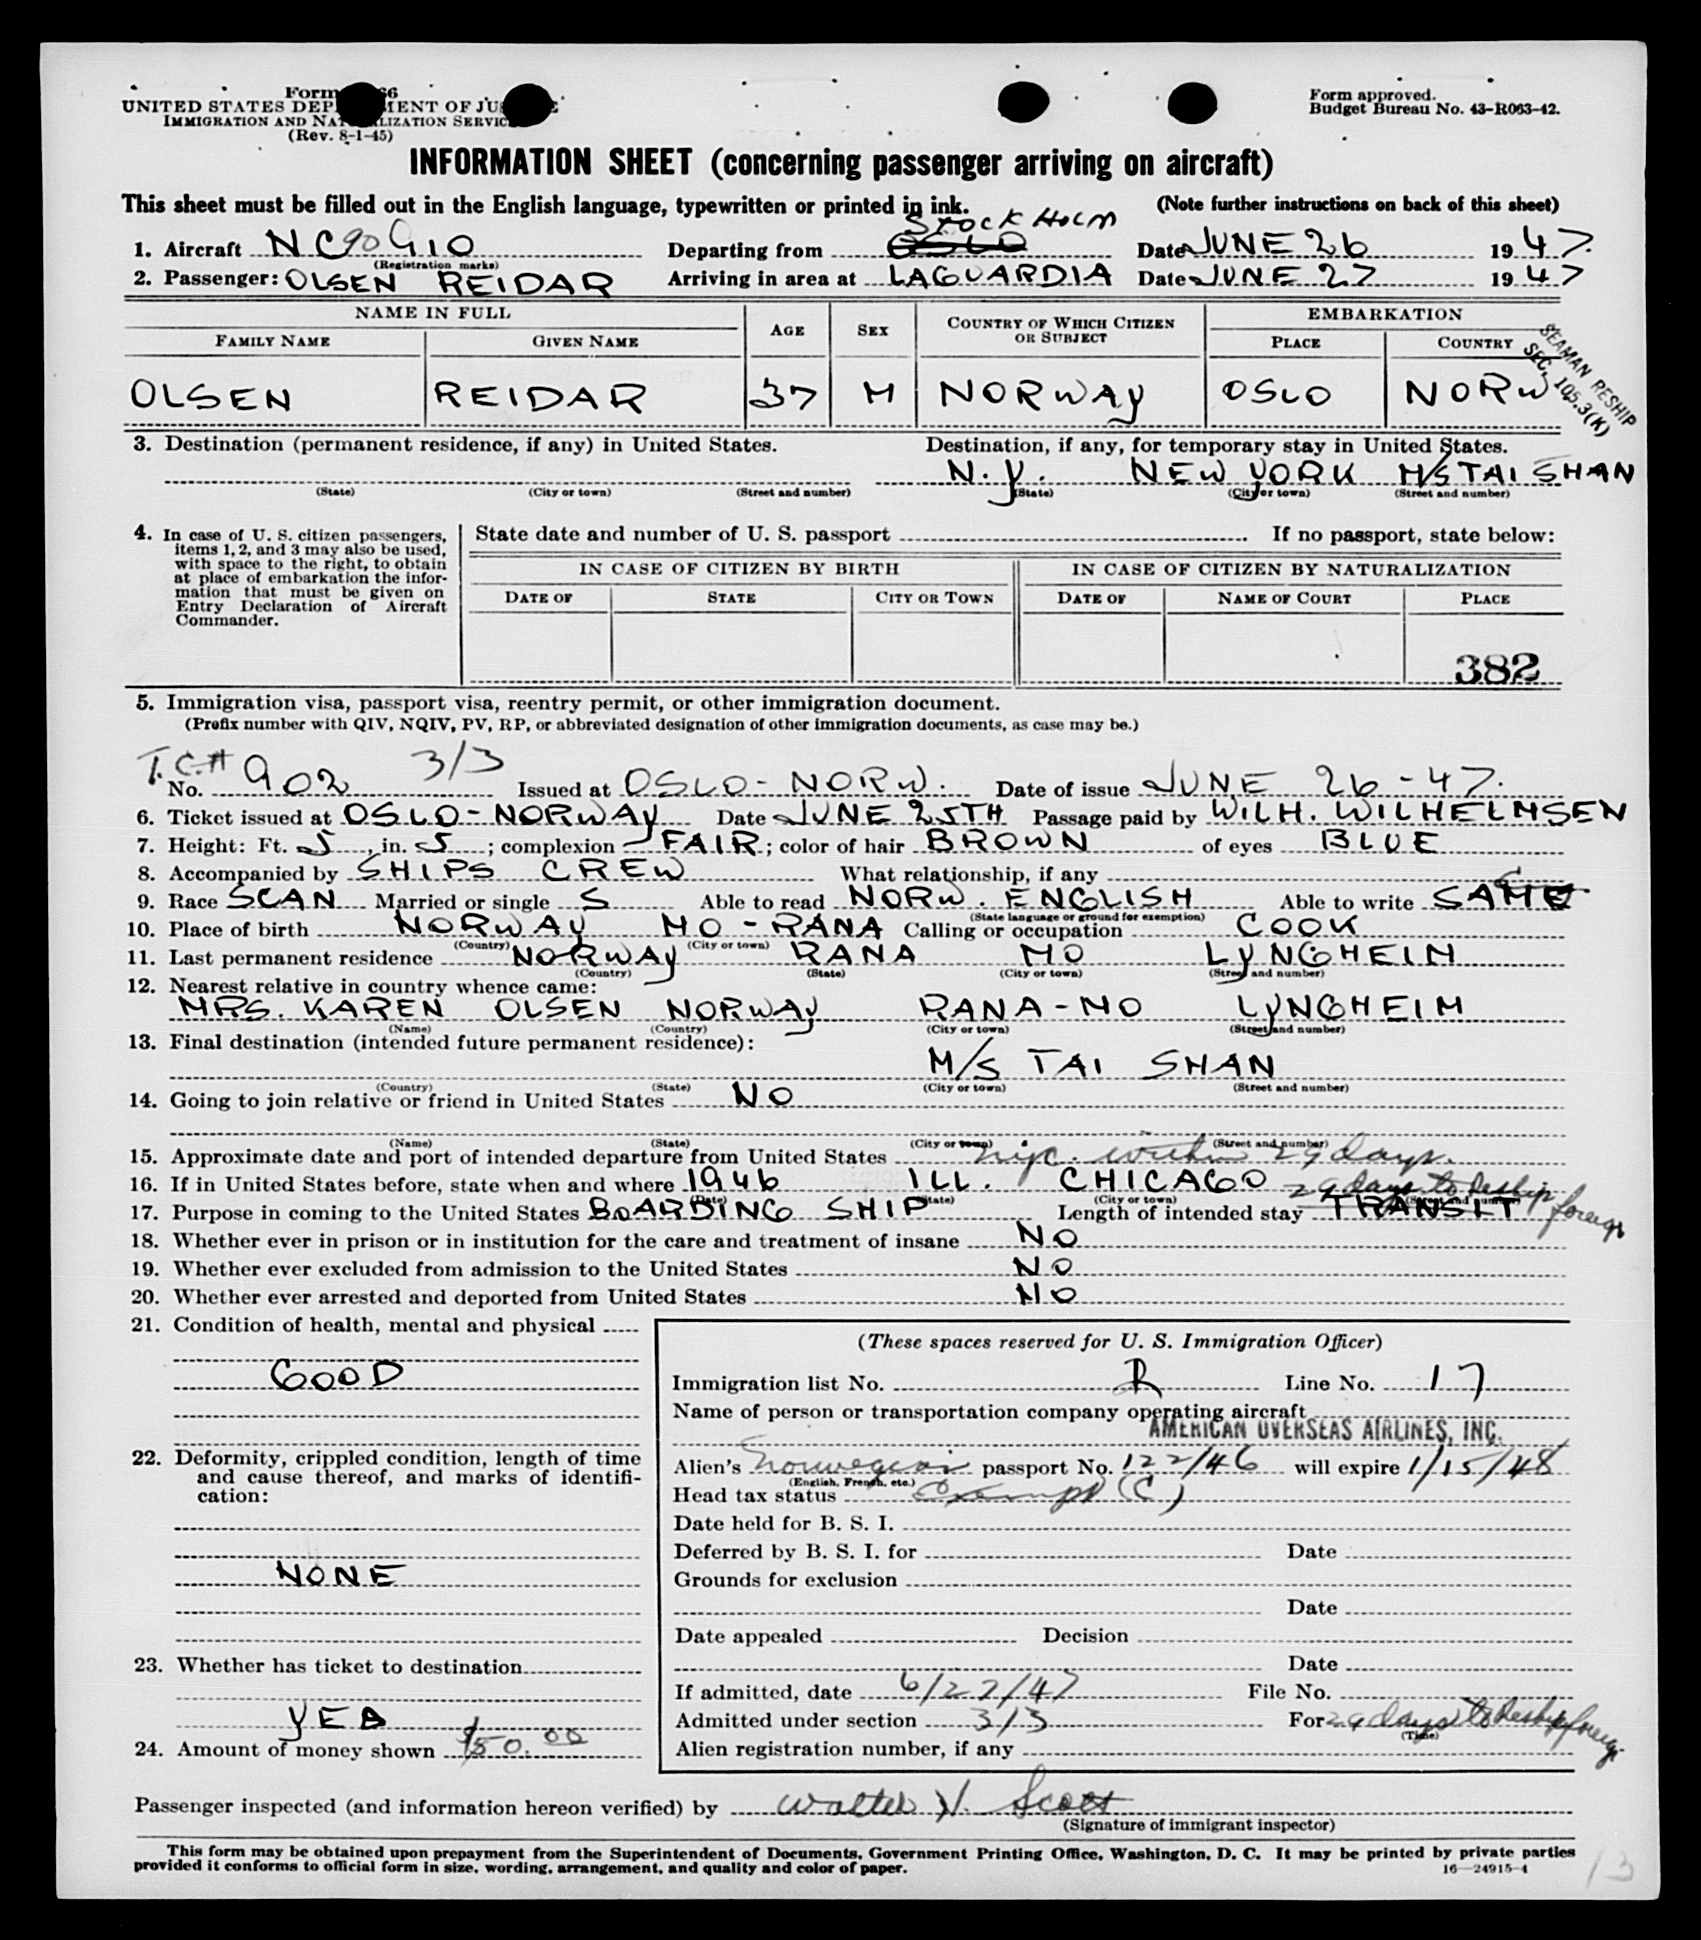 Form 66
UNITED STATES DEP MENT OF JUS E
IMMIGRATION AND NAT LIZATION SERVIC
(Rev. 8-1-45)
Form approved.
Budget Bureau No. 43-R063-42.
INFORMATION SHEET (concerning passenger arriving on aircraft)
This sheet must be filled out in the English language, typewritten or printed in ink. (Note further instructions on back of this sheet)
STOCKHOLM
1. Aircraft NC90910 Departing from OSLO Date JUNE 26 1947.
(Registration marks)
2. Passenger: OLSEN REIDAR Arriving in area at LAGUARDIA Date JUNE 27 1947
NAME IN FULL AGE SEX COUNTRY OF WHICH CITIZEN OR SUBJECT EMBARKATION
FAMILY NAME GIVEN NAME PLACE COUNTRY
SEAMAN RESHIP
SEC. 105.3(K)
OLSEN REIDAR 37 M NORWAY OSLO NORW
3. Destination (permanent residence, if any) in United States. Destination, if any, for temporary stay in United States.
N.Y. NEW YORK M/S TAI SHAN
(State) (City or town) (Street and number) (State) (City or town) (Street and number)
4. In case of U. S. citizen passengers, items 1, 2, and 3 may also be used, with space to the right, to obtain at place of embarkation the information that must be given on Entry Declaration of Aircraft Commander.
State date and number of U. S. passport If no passport, state below:
IN CASE OF CITIZEN BY BIRTH IN CASE OF CITIZEN BY NATURALIZATION
DATE OF STATE CITY OR TOWN DATE OF NAME OF COURT PLACE
382
5. Immigration visa, passport visa, reentry permit, or other immigration document.
(Prefix number with QIV, NQIV, PV, RP, or abbreviated designation of other immigration documents, as case may be.)
T.C.# 3/3
No. 902 Issued at OSLO - NORW. Date of issue JUNE 26 - 47.
6. Ticket issued at OSLO - NORWAY Date JUNE 25TH Passage paid by WILH. WILHELMSEN
7. Height: Ft. 5, in. 5; complexion FAIR; color of hair BROWN of eyes BLUE
8. Accompanied by SHIPS CREW What relationship, if any
9. Race SCAN Married or single S Able to read NORW. ENGLISH Able to write SAME
(State language or ground for exemption)
10. Place of birth NORWAY MO - RANA Calling or occupation COOK
(Country) (City or town)
11. Last permanent residence NORWAY RANA MO LYNGHEIM
(Country) (State) (City or town) (Street and number)
12. Nearest relative in country whence came:
MRS. KAREN OLSEN NORWAY RANA-MO LYNGHEIM
(Name) (Country) (City or town) (Street and number)
13. Final destination (intended future permanent residence):
M/S TAI SHAN
(Country) (State) (City or town) (Street and number)
14. Going to join relative or friend in United States NO
(Name) (State) (City or town) (Street and number)
15. Approximate date and port of intended departure from United States nyc. within 29 days.
16. If in United States before, state when and where 1946 ILL. CHICAGO
(Date) (State) (City or town) (Street and number)
29 days to reship foreign
17. Purpose in coming to the United States BOARDING SHIP Length of intended stay TRANSIT
18. Whether ever in prison or in institution for the care and treatment of insane NO
19. Whether ever excluded from admission to the United States NO
20. Whether ever arrested and deported from United States NO
21. Condition of health, mental and physical
GOOD
22. Deformity, crippled condition, length of time and cause thereof, and marks of identification:
NONE
23. Whether has ticket to destination
YES
24. Amount of money shown $50.00
(These spaces reserved for U. S. Immigration Officer)
Immigration list No. R Line No. 17
Name of person or transportation company operating aircraft
AMERICAN OVERSEAS AIRLINES, INC.
Alien's Norwegian passport No. 122/46 will expire 1/15/48
(English, French, etc.)
Head tax status Exempt (C)
Date held for B. S. I.
Deferred by B. S. I. for Date
Grounds for exclusion
Date
Date appealed Decision
Date
If admitted, date 6/27/47 File No.
Admitted under section 3/3 For 29 days to reship foreign
(Time)
Alien registration number, if any
Passenger inspected (and information hereon verified) by Walter H. Scott
(Signature of immigrant inspector)
This form may be obtained upon prepayment from the Superintendent of Documents, Government Printing Office, Washington, D. C. It may be printed by private parties
provided it conforms to official form in size, wording, arrangement, and quality and color of paper. 16—24915-4
13